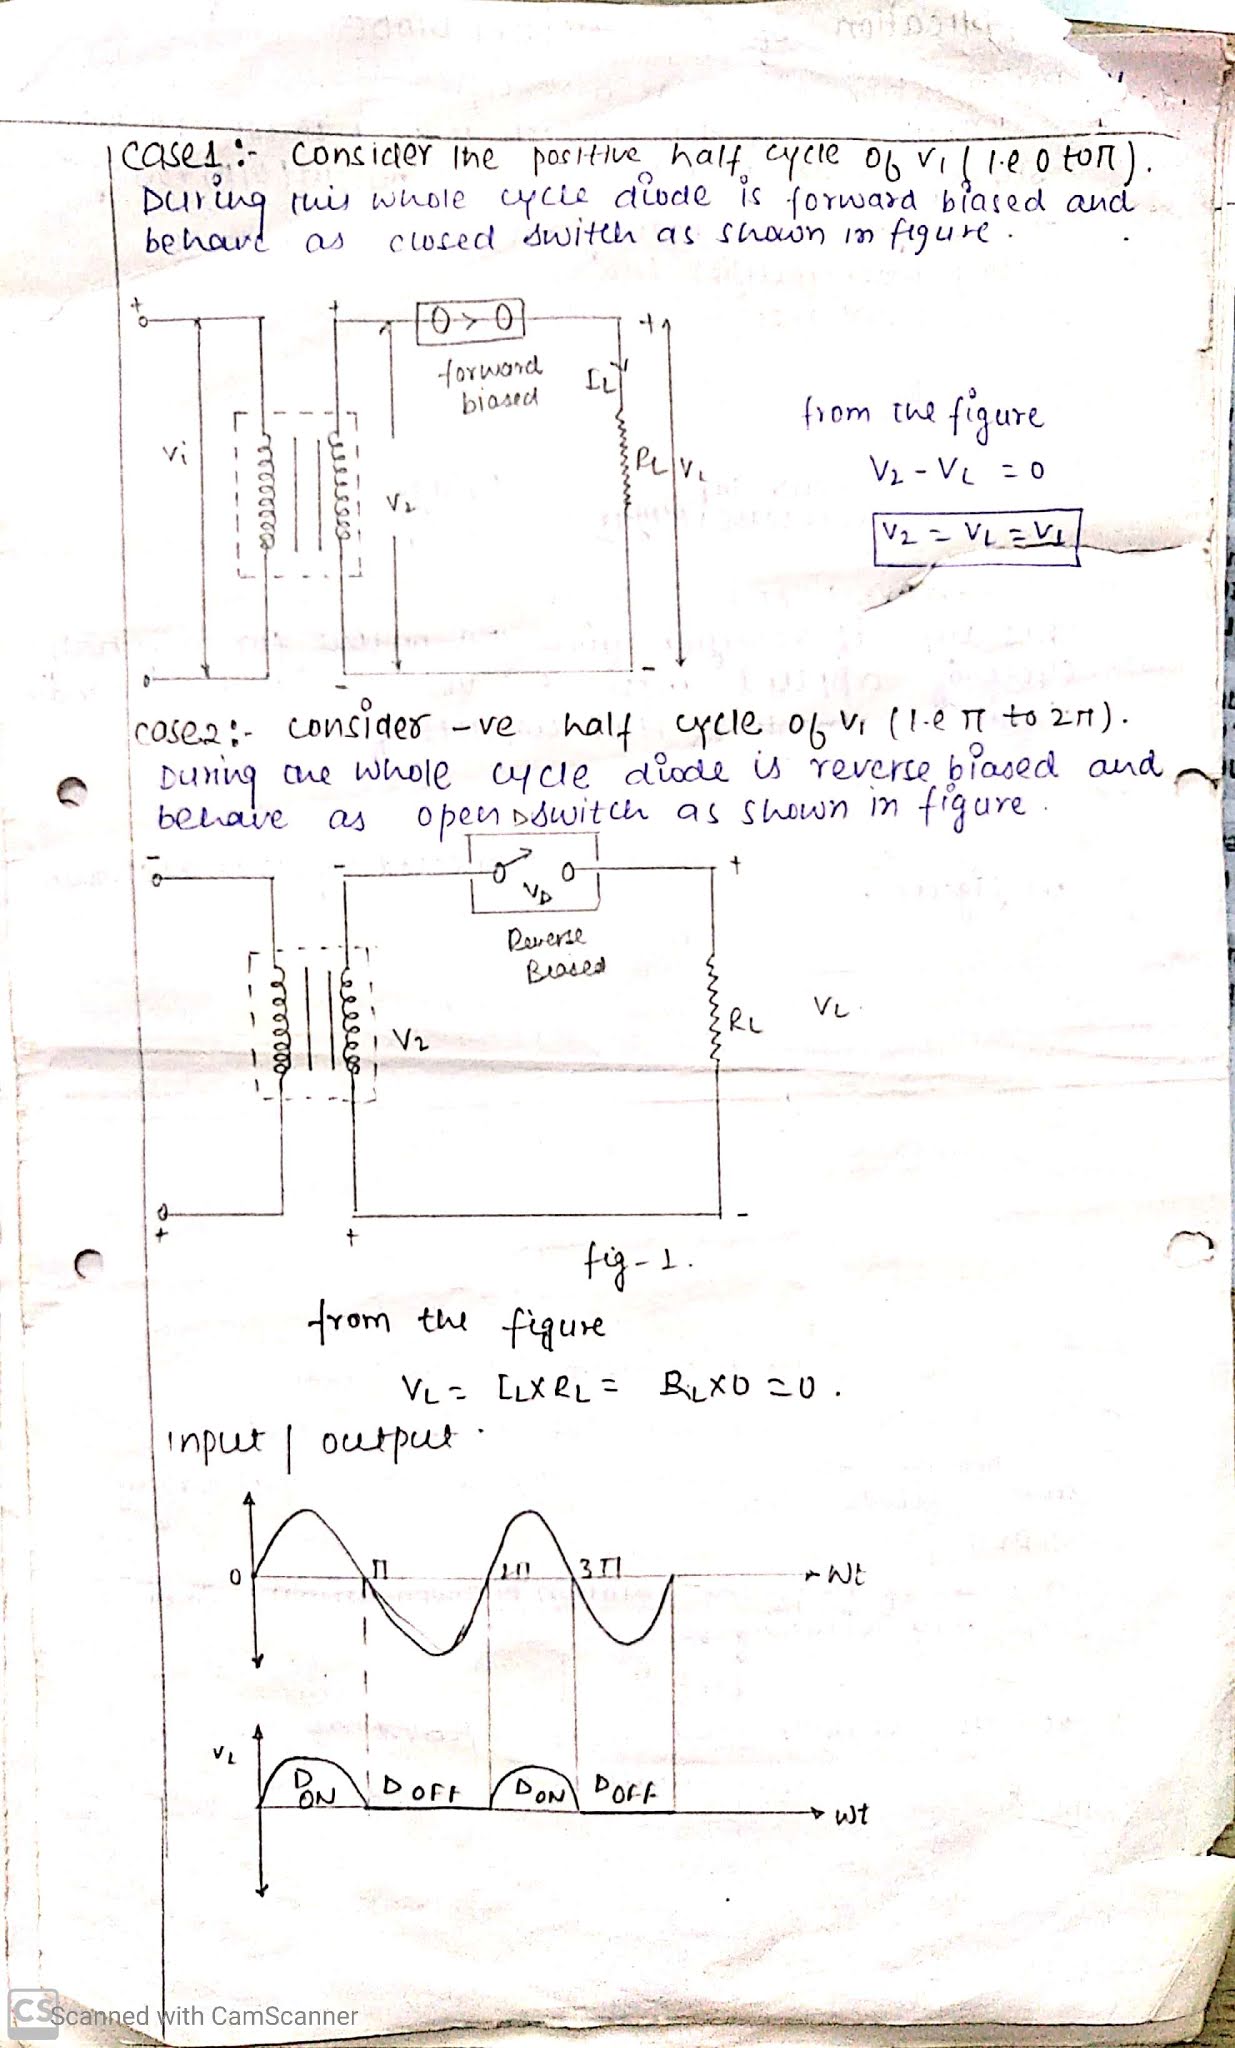 case1 :- Consider the positive half cycle of Vi (i.e 0 to π).
During this whole cycle diode is forward biased and
behave as closed switch as shown in figure.
+
+
+
forward
biased
IL
Vi
V2
RL
VL
-
-
from the figure
V2 - VL = 0
V2 = VL = Vi
case2 :- consider -ve half cycle of Vi (i.e π to 2π).
During the whole cycle diode is reverse biased and
behave as open switch as shown in figure.
-
-
+
VD
Reverse
Biased
V2
RL
VL
+
+
-
fig-1.
from the figure
VL = ILXRL = RLX0 = 0.
input | output
0
π
2π
3π
Wt
VL
D ON
D OFF
D ON
D OFF
Wt
CS
Scanned with CamScanner